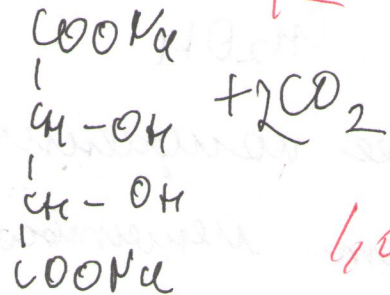 COONa
|
CH - OH + 2CO2
|
CH - OH
|
COONa